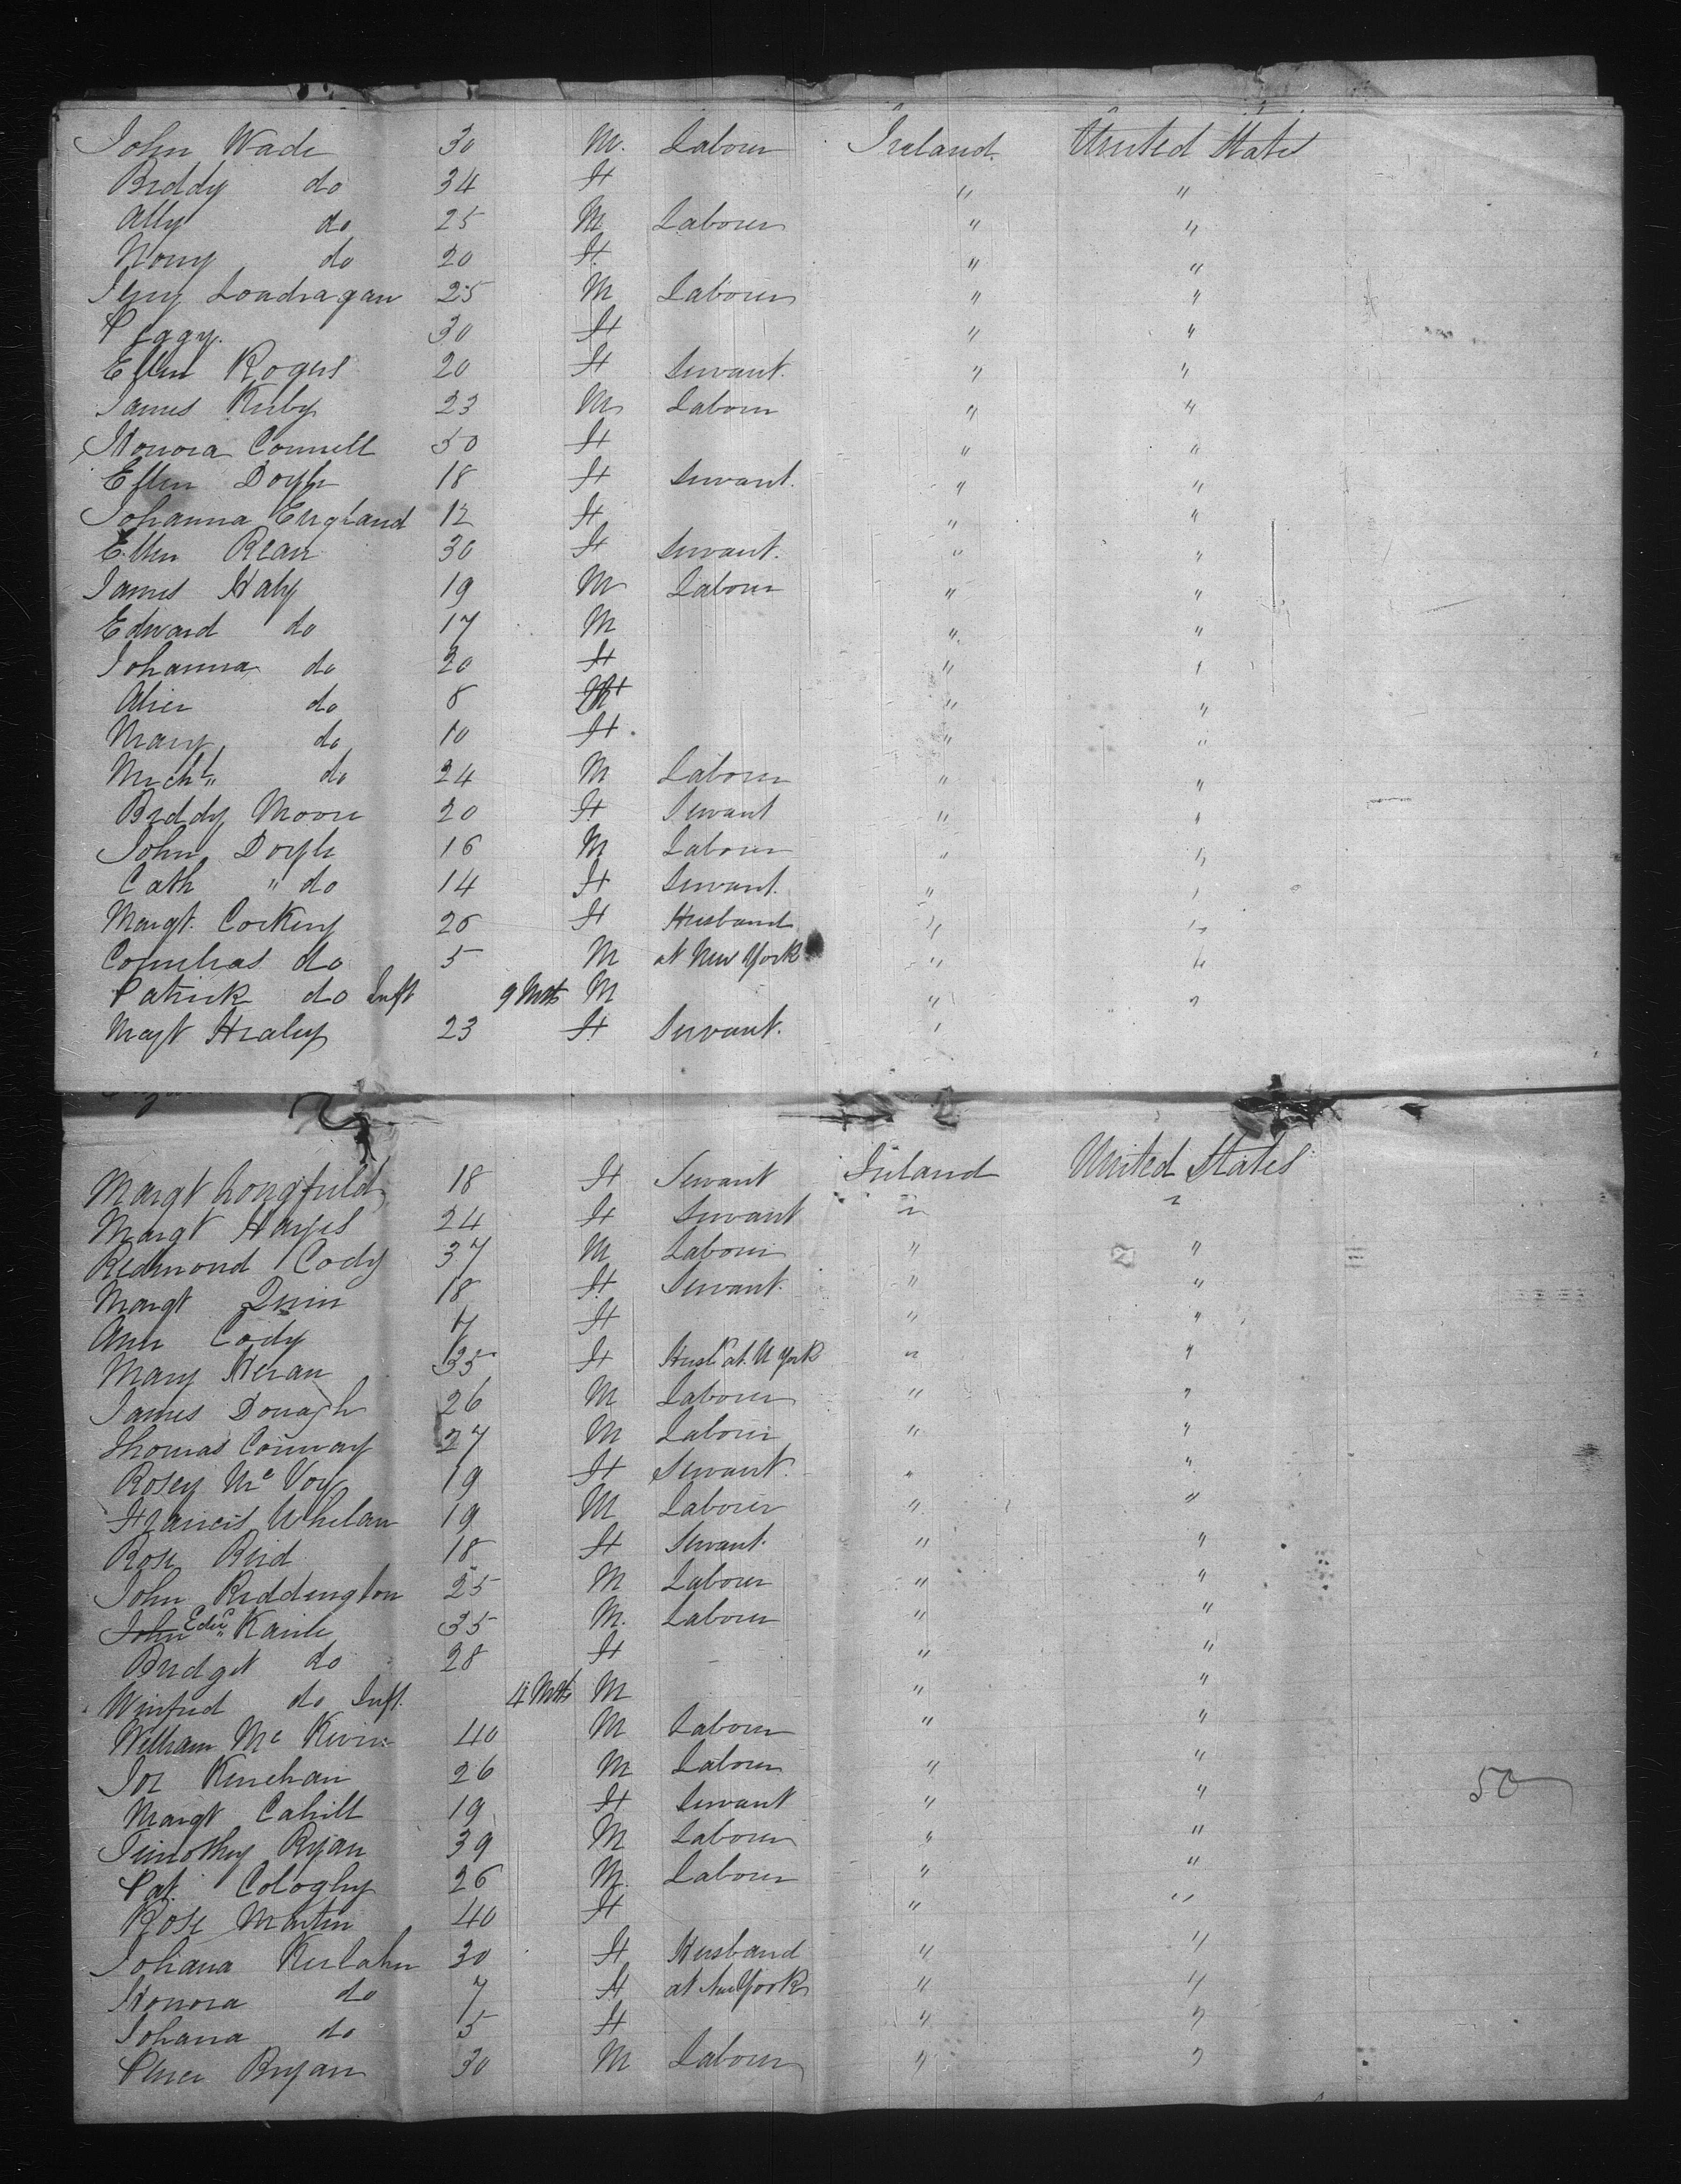 John Wade 30 M. Labour Ireland. United States
Biddy do 34 F " "
Ally do 25 M Labour " "
Nony do 20 F " "
Jerry Londragan 25 M Labour " "
Peggy. 30 F " "
Ellen Rogers 20 F Servant. " "
James Kirby 23 M Labour " "
Honora Connell 50 F " "
Ellen Doyle 18 F Servant. " "
Johanna England 12 F " "
Ellen Ryan 30 F Servant. " "
James Haly 19 M Labour " "
Edward do 17 M " "
Johanna do 20 F " "
Alice do 8 F " "
Mary do 10 F " "
Michl. do 24 M Labour " "
Biddy Moore 20 F Servant " "
John Doyle 16 M Labour " "
Cath " do 14 F Servant. " "
Margt. Corkery 26 F Husband " "
Cornelias do 5 M at New York " "
Patrick do Inft 9 Mths M " "
Magt Healey 23 F Servant. "
Margt Longfield 18 F Servant Ireland United States
Margt Hayes 24 F Servant " "
Redmond Cody 37 M Labour " "
Margt Quin 18 F Servant. " "
Ann Cody 7 F " "
Mary Keran 35 F Husd at N York " "
James Donagh 26 M Labour " "
Thomas Conway 27 M Labour " "
Rosey Mc Voy 19 F Servant. " "
Francis Whelan 19 M Labour " "
Rose Reid 18 F Servant. " "
John Reddington 25 M Labour " "
John Edwd Kaine 35 M. Labour " "
Bridget do 28 F " "
Winfred do Inft. 4 Mths M " "
William Mc Kevin 40 M Labour " "
Jos Kinehan 26 M Labour " "
Margt Cahill 19 F Servant " " 50
Timothy Ryan 39 M Labour " "
Pat. Cologhy 26 M. Labour " "
Rose Martin 40 F " "
Johana 30 F Husband " "
Honora do 7 F at New York " "
Johana do 5 F " "
Bryan 30 M Labour " "